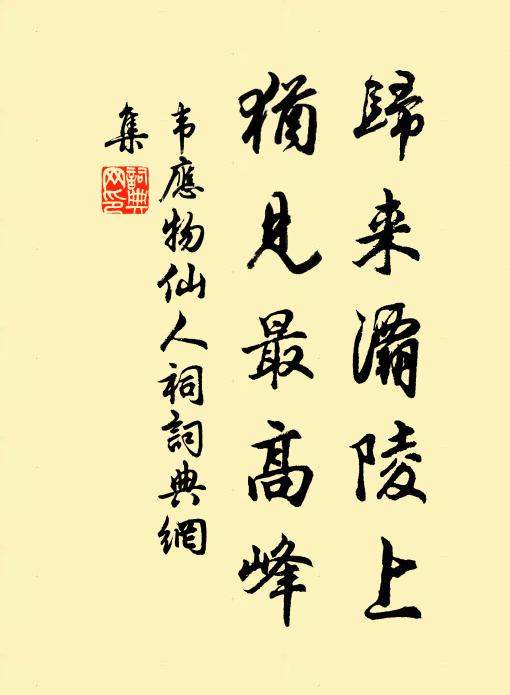 歸来灞陵上
猶見最高峰
韦應物仙人祠詞典網
集
詞典网印